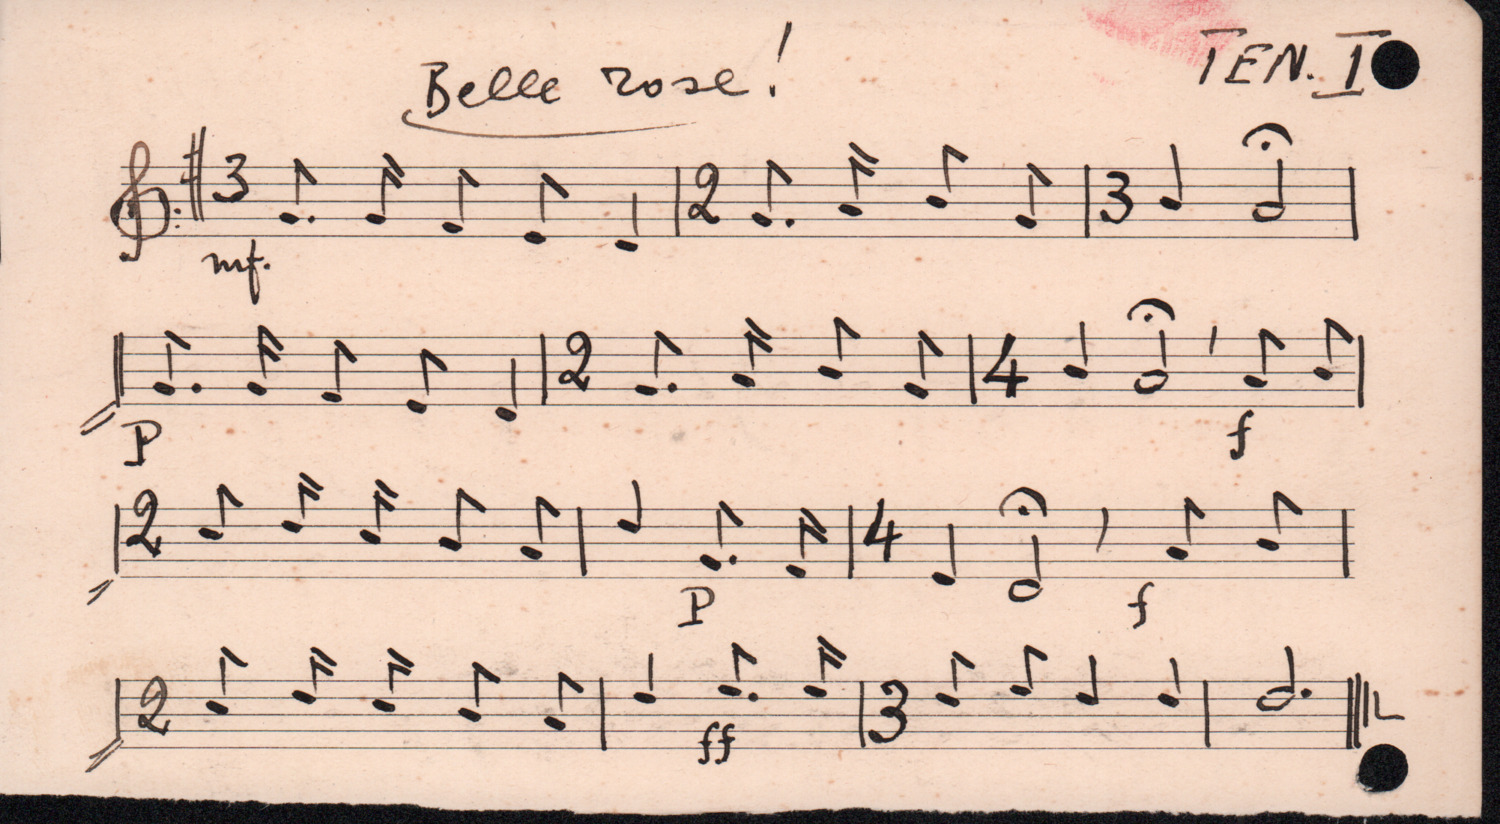 Belle rose!
TEN. I
3 2 3
mf.
2 4
P f
2 4
P f
2 3
ff